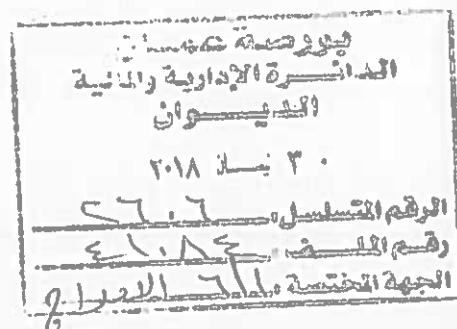 بورصة عمــان
الدائــرة الإدارية والمالية
الديـــوان
٣٠ نيسـان ٢٠١٨
الرقم المتسلسل: ٢٦٠٦
رقـم الملـف: ٤١٠٨٤
الجهة المختصة: الإدراج